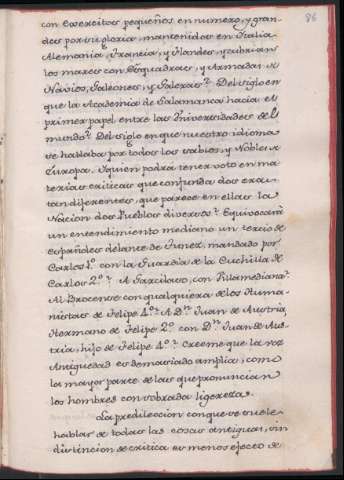 86
con Exercitos pequeños en numero, y gran-
des por su gloria, mantenidos en Italia
Alemania, Francia, y Flandes, y cubrian
los mares con Esquadras, y Armadas de
Navios, Galeones, y Galeras? Del siglo en
que la Academia de Salamanca hacia el
primer papel entre las Universidades del
mundo? Del siglo en que nuestro idioma
se hablaba por todos los sabios, y Nobles de
Europa. Y quien podrá tener voto en ma-
terias criticas que confunda dos eras
tan diferentes, que parece en ellas la
Nacion dos Pueblos diversos? Equivocará
un entendimiento mediano un tercio de
españoles delante de Tunez, mandado por
Carlos 1º con la Guardia de la Cuchilla de
Carlos 2º? A Garcilaso, con Villamediana?
Al Brocense con qualquiera de los Huma-
nistas de Felipe 4º? A Dn Juan de Austria
Hermano de Felipe 2º con Dn Juan de Aus-
tria, hijo de Felipe 4º? Creeme que la voz
Antiguedad es demasiado amplia, como
la mayor parte de las que pronuncian
los hombres con sobrada ligereza.
La predileccion con que se suele
hablar de todas las cosas antiguas, sin
distincion de critica es menos efecto de